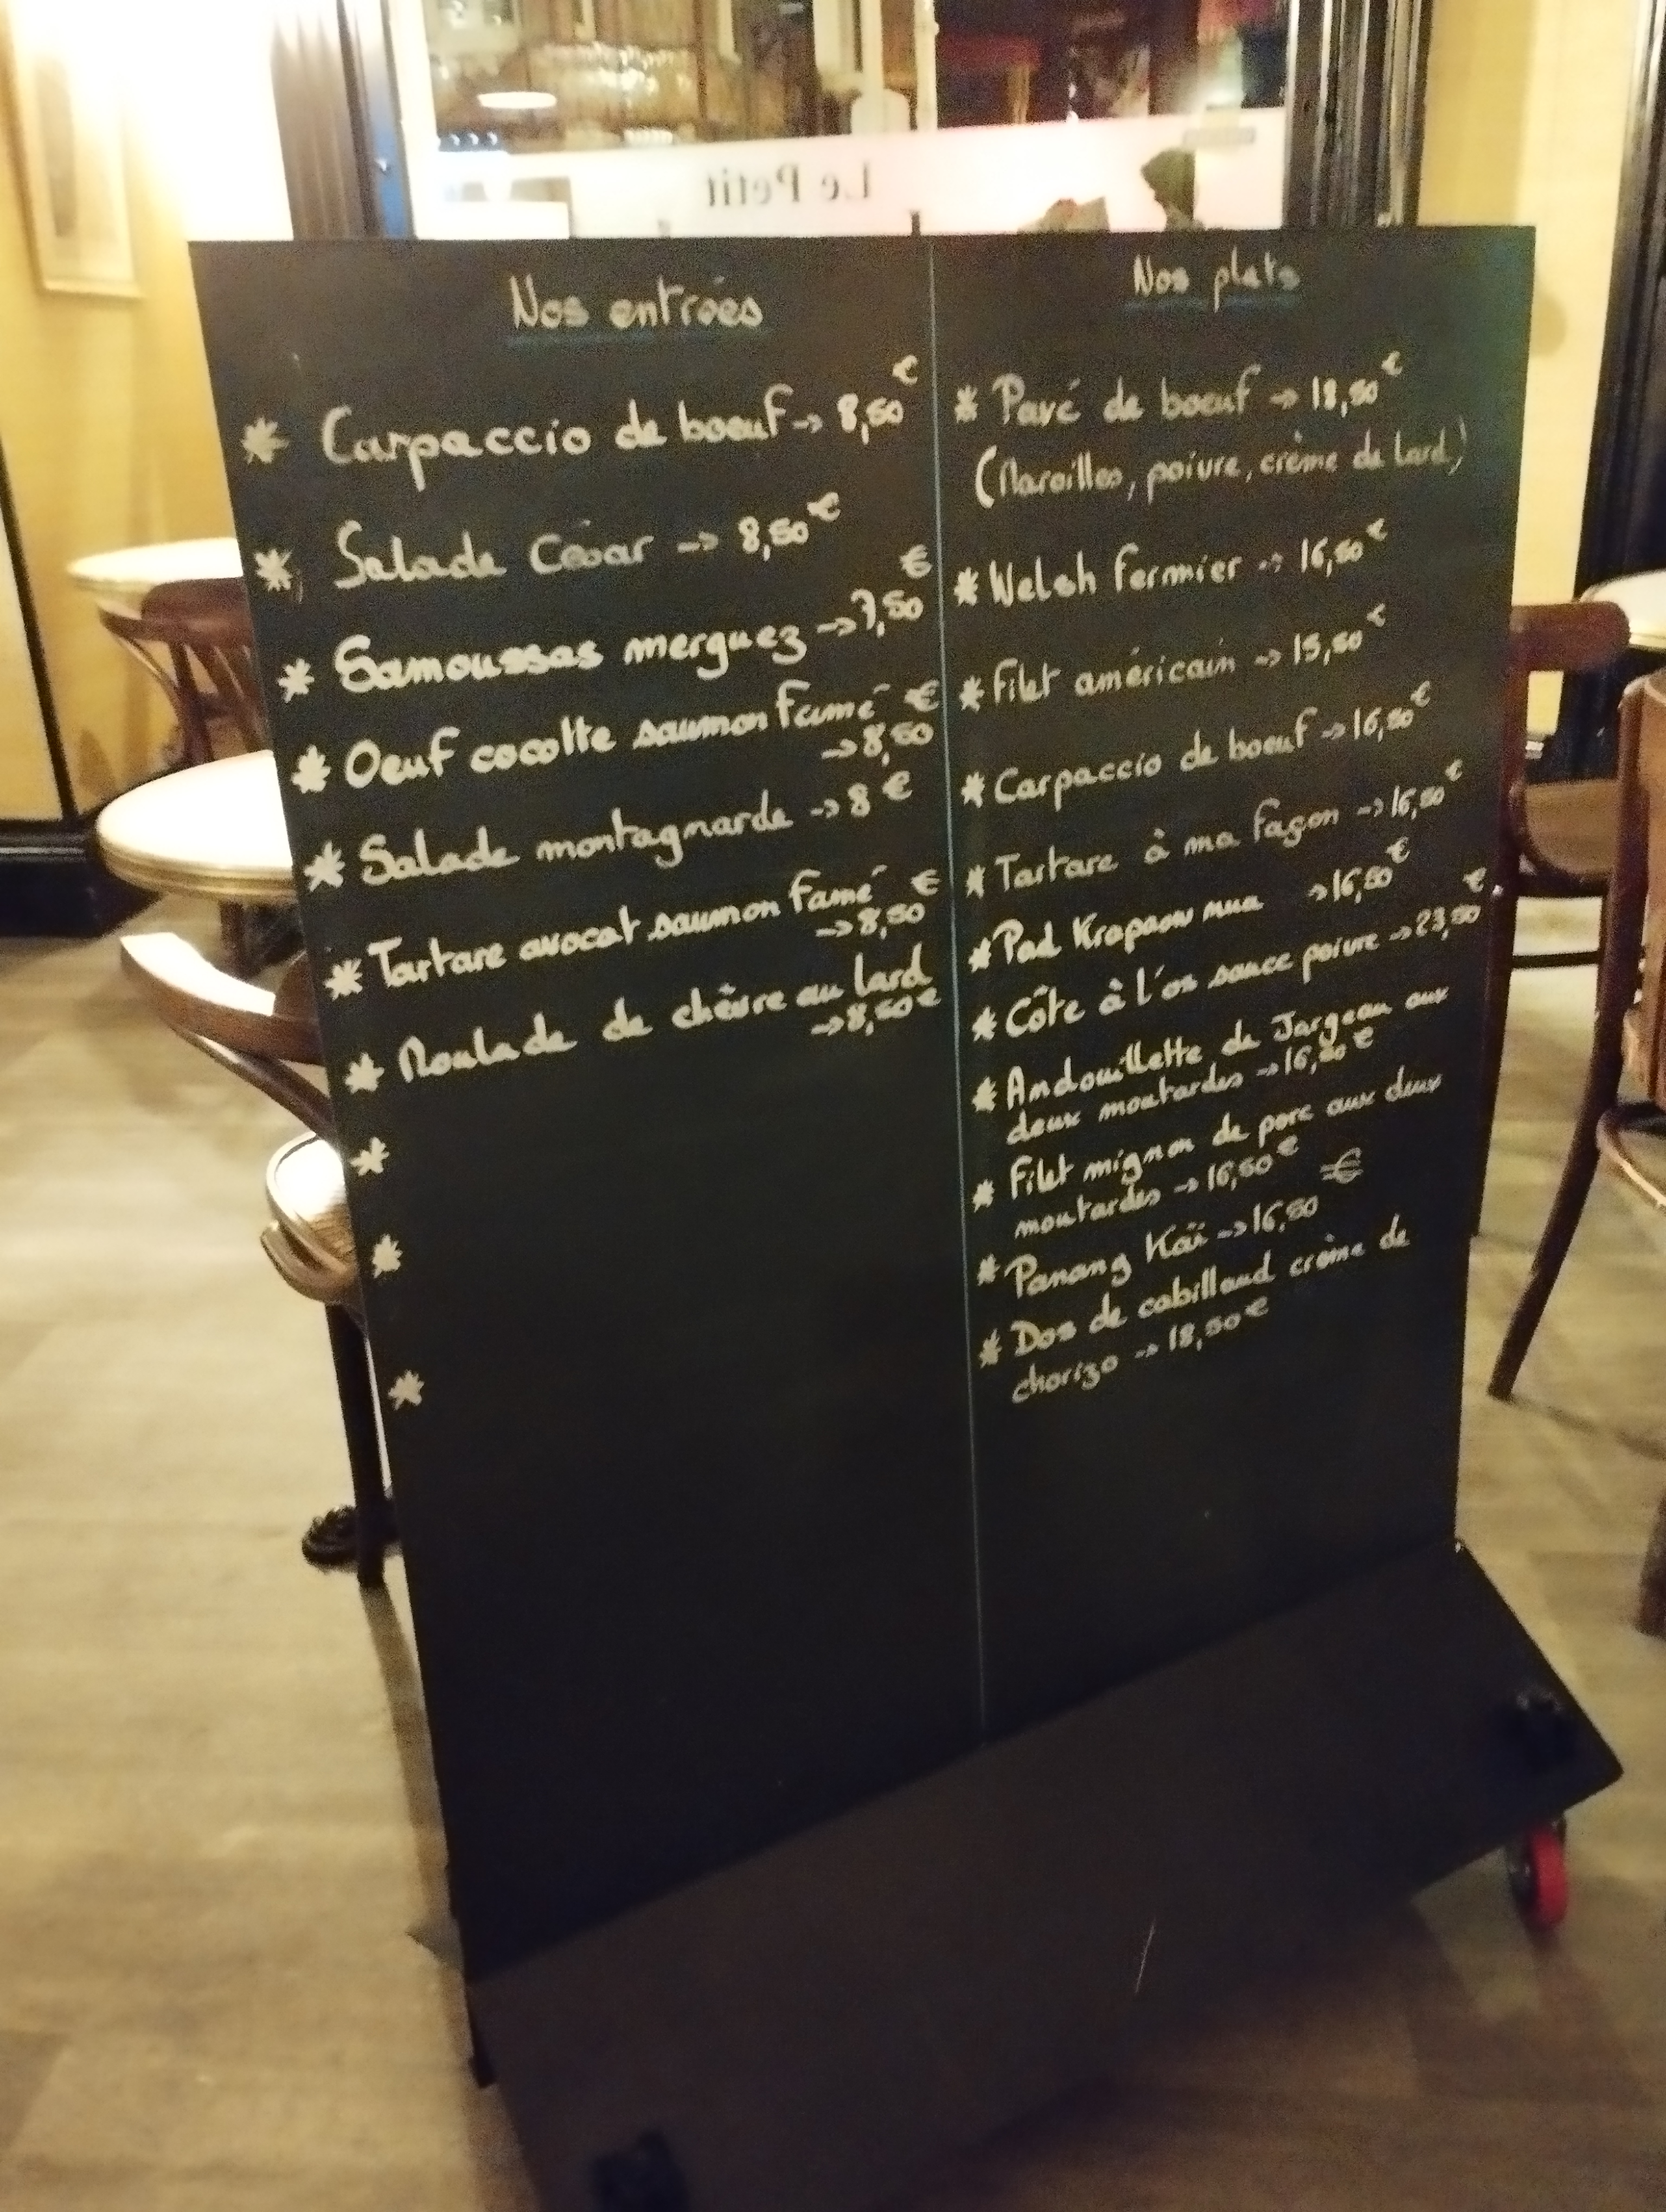 Le Petit
Nos entrées
* Carpaccio de boeuf -> 8,50€
* Salade César -> 8,50€
* Samoussas merguez -> 7,50€
* Oeuf cocotte saumon fumé
-> 8,50€
* Salade montagnarde -> 8€
* Tartare avocat saumon fumé
-> 8,50€
* Roulade de chèvre au lard
-> 8,50€
*
*
*
Nos plats
* Pavé de boeuf -> 18,50€
(Maroilles, poivre, crème de lard)
* Welsh fermier -> 16,50€
* Filet américain -> 15,50€
* Carpaccio de boeuf -> 16,50€
* Tartare à ma façon -> 16,50€
* Pad Krapaow mua -> 16,50€
* Côte à l'os sauce poivre -> 23,50€
* Andouillette de Jargeau aux
deux moutardes -> 16,50€
* Filet mignon de porc aux deux
moutardes -> 16,50€
* Panang Kaï -> 16,50€
* Dos de cabillaud crème de
chorizo -> 18,50€